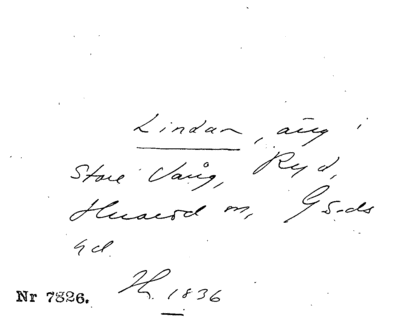 Lindan, äng i
Store Vång, Ryd,
Hvarod sn, Gs-ds
hd.
Nr 7826. H. 1836